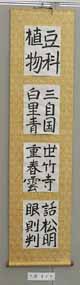 豆科
植物
三自国
白里青
世竹寺
重春雲
話松明
眼則判